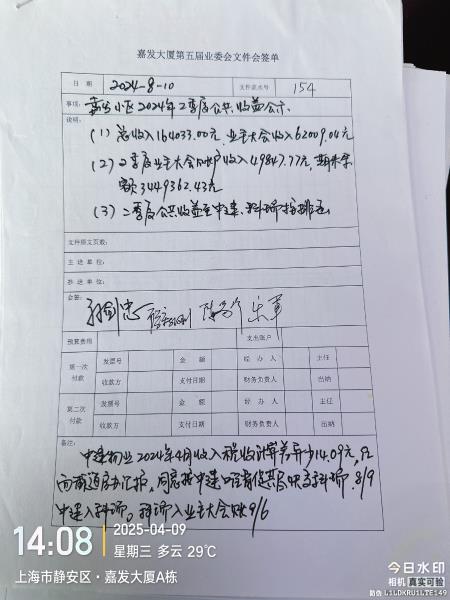 嘉发大厦第五届业委会文件会签单
日 期 2024-8-10 文件流水号 154
事项: 嘉发小区2024年二季度公共收益公示
说明:
(1) 总收入164033.00元,业主大会收入62009.04元
(2) 二季度业主大会账户收入49847.77元,期末余
额3449362.43元
(3) 二季度公共收益至中建、科瑞
文件原文页数:
主 送 单 位:
抄 送 单 位:
会签:
预算费用 支出账户
第一次 付款 发票号 金 额 经 办 人 主任
收款方 支付日期 财务负责人 出纳
第二次 付款 发票号 金 额 经 办 人 主任
收款方 支付日期 财务负责人 出纳
备注:
中建物业2024年4月收入税收计算差异少14.09元,已
同意按中建 8/9
中建入科瑞。科瑞入业主大会账9/6
14:08 2025-04-09
星期三 多云 29℃
上海市静安区·嘉发大厦A栋
今日水印
相机 真实可验
防伪 L1LDKRU1LTE149